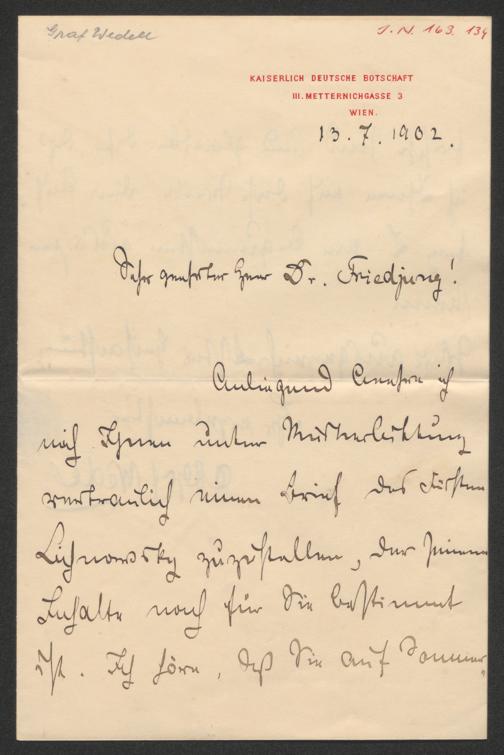 Graf Wedell
I.N. 163.134
KAISERLICH DEUTSCHE BOTSCHAFT
III. METTERNICHGASSE 3
WIEN.
13.7.1902.
Sehr geehrter Herr Dr. Friedjung!
Anliegend beehre ich
mich Ihnen unter Rückerbittung
vertraulich einen Brief des Fürsten
Lichnowsky zuzustellen, der seinem
Inhalte nach für Sie bestimmt
ist. Ich höre, daß Sie auf Sommer